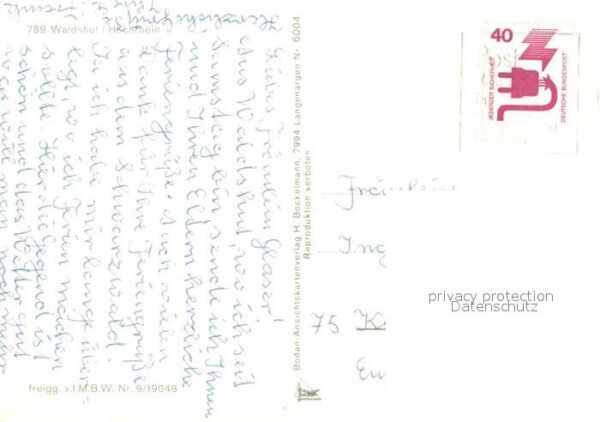 789 Waldshut / Hochrhein
Herzliche Grüße
Liebes Fräulein Glaser!
Aus Waldshut, wo ich seit
Samstag bin sende ich Ihnen
und Ihren Eltern herzliche
Feriengrüße. Auch vielen
Dank für Ihre Feriengrüße
aus dem Schwarzwald.
Ja ich habe mir lange über-
legt, wo ich Ferien machen
sollte. Hier die Gegend ist
schön und das Wetter gut
was will man noch mehr
freigg. v.I.M.B.W. Nr. 9/19048
Bodan-Ansichtskartenverlag H. Bockelmann, 7994 Langenargen Nr. 6004
Reproduktion verboten
40
JEDERZEIT SICHERHEIT
DEUTSCHE BUNDESPOST
Fräulein
Ing
75 K
privacy protection
Datenschutz